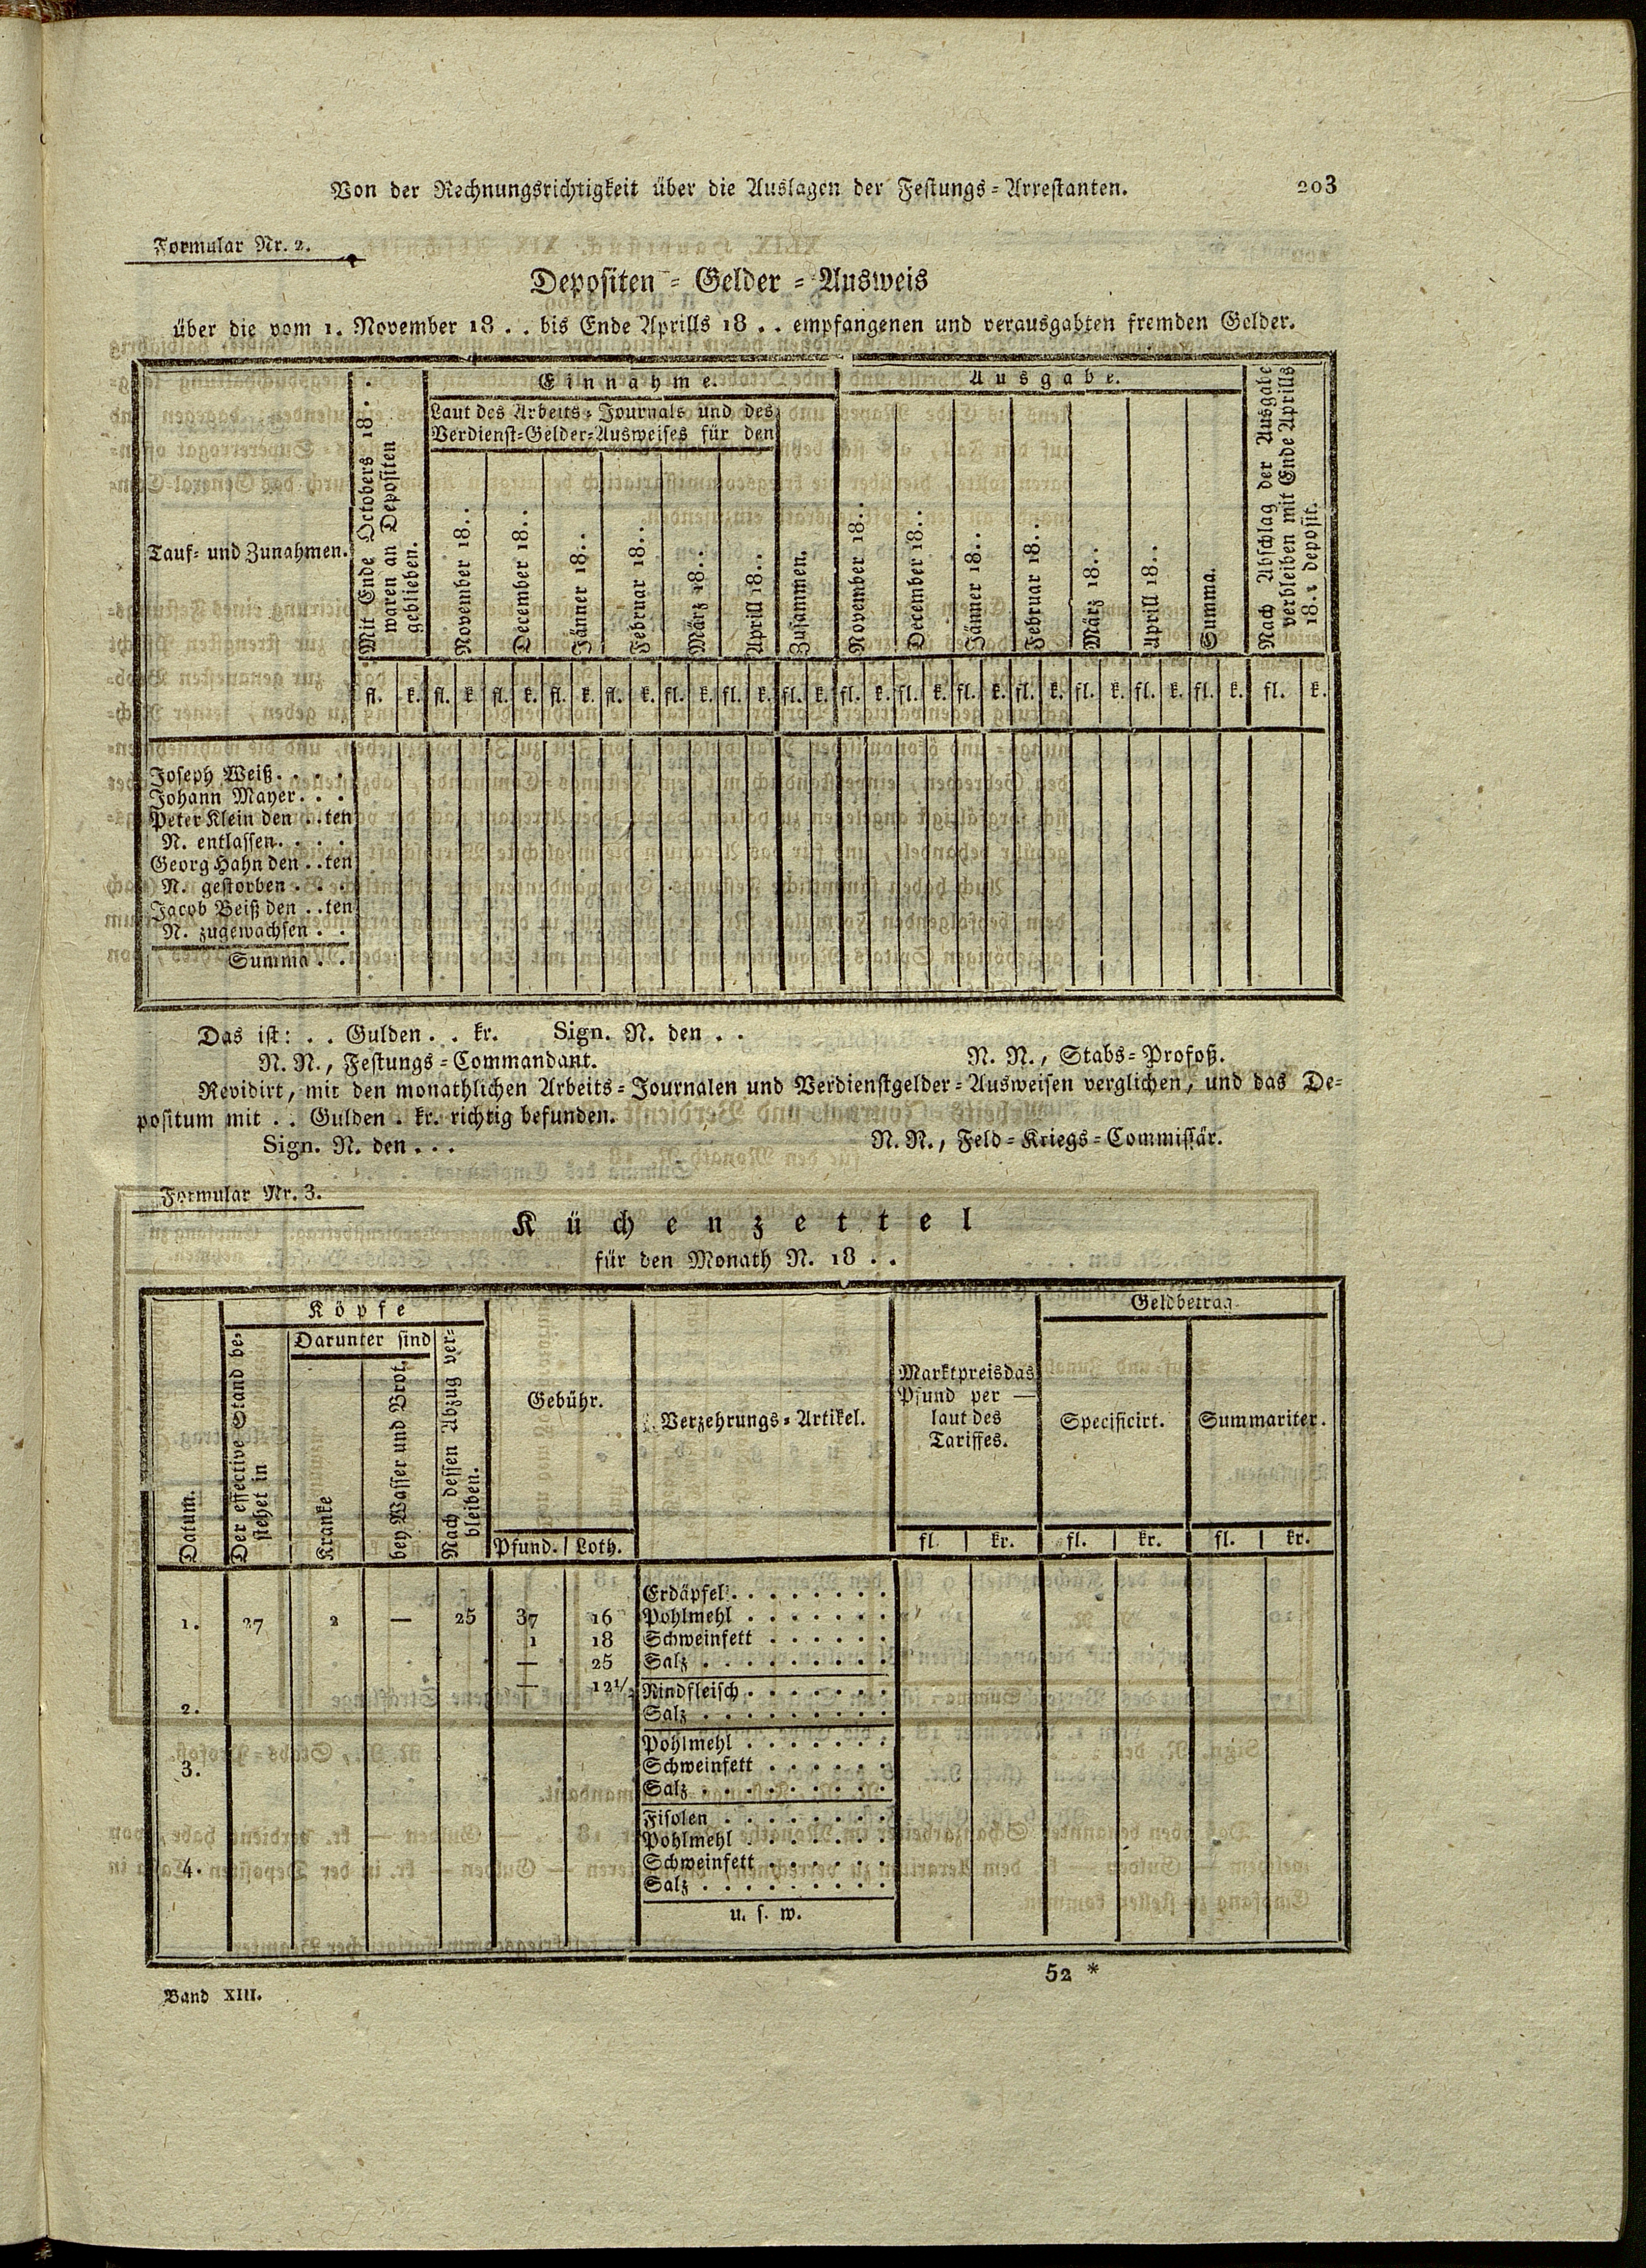 Von der Rechnungsrichtigkeit über die Auslagen der Festungs-Arrestanten. 203
Formular Nr. 2.
Depositen-Gelder-Ausweis
über die vom 1. November 18 . . bis Ende Aprills 18 . . empfangenen und verausgabten fremden Gelder.
Tauf- und Zunahmen.
Mit Ende Octobers 18 . .
waren an Depositen
geblieben.
Einnahme.
Laut des Arbeits-Journals und des
Verdienst-Gelder-Ausweises für den
November 18 . .
December 18 . .
Jänner 18 . .
Februar 18 . .
März 18 . .
Aprill 18 . .
Zusammen.
Ausgabe.
November 18 . .
December 18 . .
Jänner 18 . .
Februar 18 . .
März 18 . .
Aprill 18 . .
Summa.
Nach Abschlag der Ausgabe
verbleiben mit Ende Aprills
18 . . deposit.
fl. k. fl. k. fl. k. fl. k. fl. k. fl. k. fl. k. fl. k. fl. k. fl. k. fl. k. fl. k. fl. k. fl. k. fl. k. fl. k.
Joseph Weiß . . . .
Johann Mayer . . .
Peter Klein den . . ten
N. entlassen . . . .
Georg Hahn den . . ten
N. gestorben . . .
Jacob Beiß den . . ten
N. zugewachsen . .
Summa . .
Das ist: . . Gulden . . kr. Sign. N. den . .
N. N., Festungs-Commandant. N. N., Stabs-Profoß.
Revidirt, mit den monathlichen Arbeits-Journalen und Verdienstgelder-Ausweisen verglichen, und das De-
positum mit . . Gulden . kr. richtig befunden.
Sign. N. den . . . N. N., Feld-Kriegs-Commissär.
Formular Nr. 3.
Küchenzettel
für den Monath N. 18 . .
Datum.
Köpfe
Der effective Stand be-
stehet in
Darunter sind
Kranke
bey Wasser und Brot.
Nach dessen Abzug ver-
bleiben.
Gebühr.
Pfund. Loth.
Verzehrungs-Artikel.
Marktpreis das
Pfund per —
laut des
Tariffes.
fl. kr.
Geldbetrag
Specificirt.
fl. kr.
Summariter.
fl. kr.
Erdäpfel . . . . . . . .
1. 27 2 — 25 37 16 Pohlmehl . . . . . . .
1 18 Schweinfett . . . . . .
— 25 Salz . . . . . . . . .
— 12½ Rindfleisch . . . . . . .
2. Salz . . . . . . . . .
Pohlmehl . . . . . . .
3. Schweinfett . . . . . .
Salz . . . . . . . . .
Fisolen . . . . . . . .
Pohlmehl . . . . . . .
4. Schweinfett . . . . . .
Salz . . . . . . . . .
u. s. w.
52 *
Band XIII.